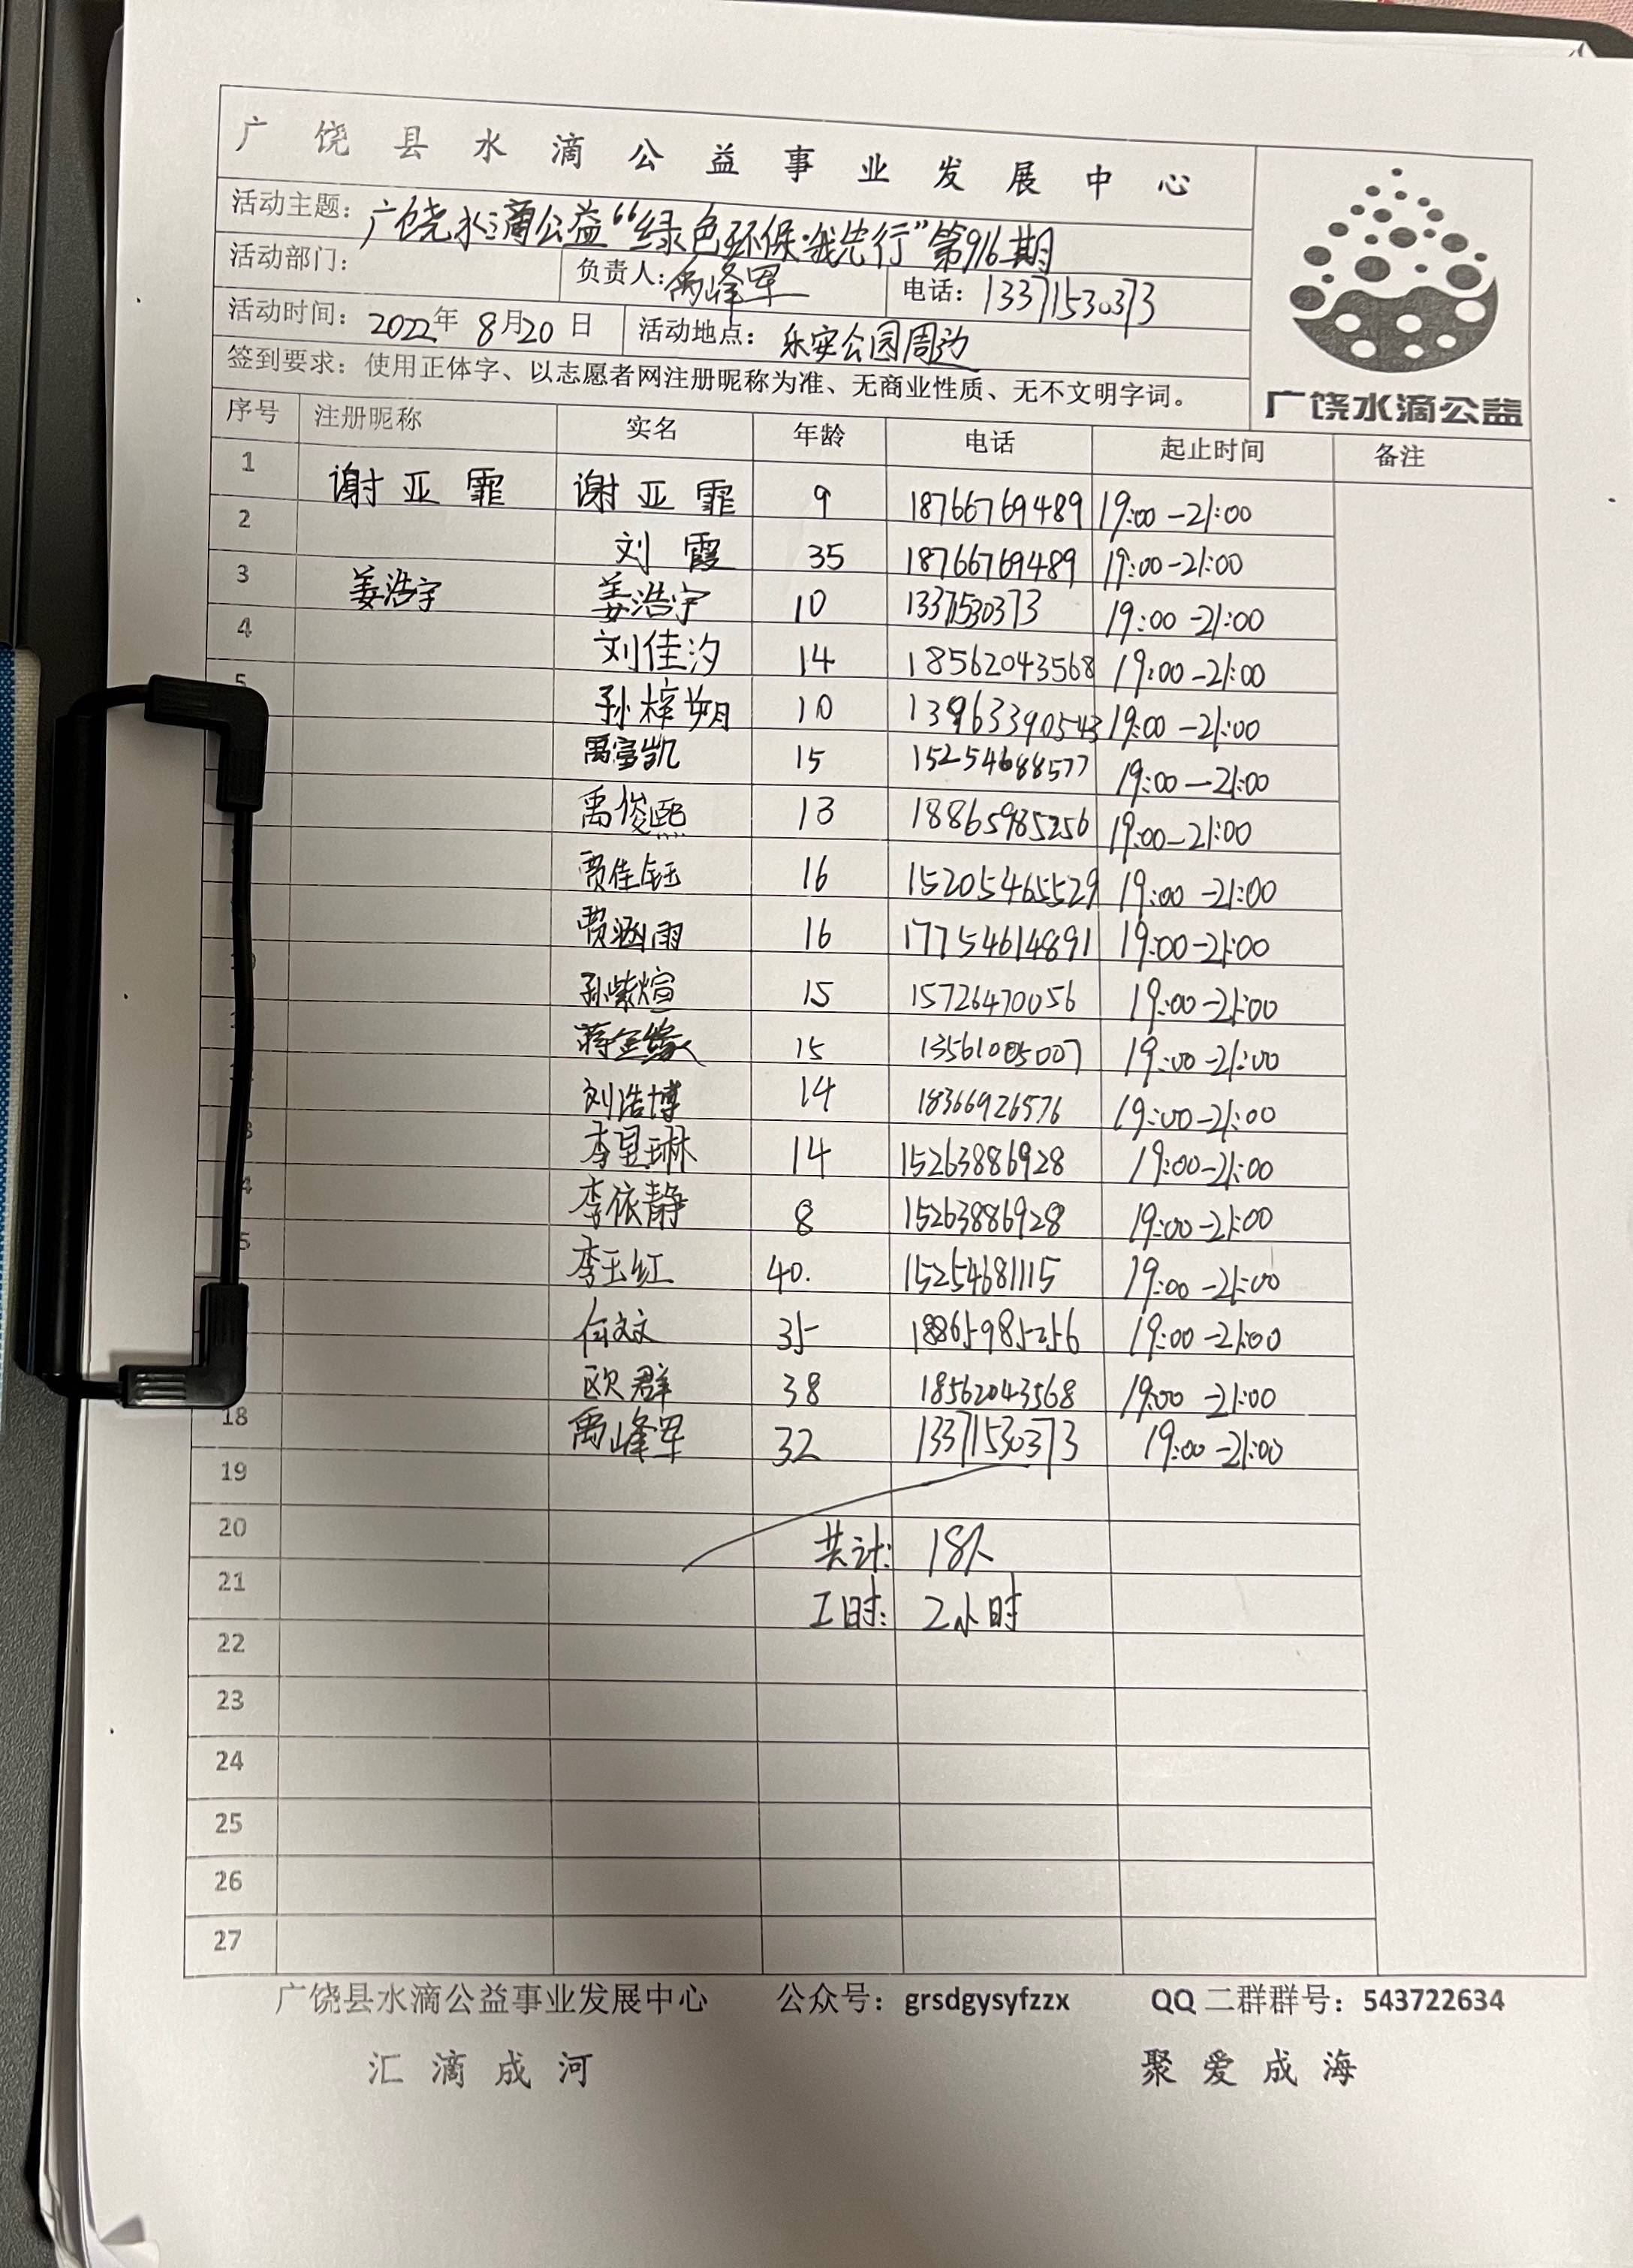 广饶县水滴公益事业发展中心
活动主题：广饶水滴公益“绿色环保·我先行”第916期
活动部门： 负责人：禹峰军 电话：13371530373
活动时间：2022年 8月20日 活动地点：乐安公园周边
签到要求：使用正体字、以志愿者网注册昵称为准、无商业性质、无不文明字词。
广饶水滴公益
序号 注册昵称 实名 年龄 电话 起止时间 备注
1 谢亚霏 谢亚霏 9 18766769489 19:00-21:00
2 刘霞 35 18766769489 19:00-21:00
3 姜浩宇 姜浩宇 10 13371530373 19:00-21:00
4 刘佳汐 14 18562043568 19:00-21:00
5 孙梓玥 10 13963390543 19:00-21:00
禹富凯 15 15254688577 19:00-21:00
禹俊熙 13 18865985256 19:00-21:00
贾佳钰 16 15205465529 19:00-21:00
贾涵雨 16 17754614891 19:00-21:00
10 孙紫煊 15 15726470056 19:00-21:00
蒋金缘 15 13561005007 19:00-21:00
刘浩博 14 18366926576 19:00-21:00
3 李昱琳 14 15263886928 19:00-21:00
4 李依静 8 15263886928 19:00-21:00
5 李玉红 40. 15254681115 19:00-21:00
何文文 35 18865985256 19:00-21:00
欧群 38 18562043568 19:00-21:00
18 禹峰军 32 13371530373 19:00-21:00
19
20 共计：18人
21 工时：2小时
22
23
24
25
26
27
广饶县水滴公益事业发展中心 公众号：grsdgysyfzzx QQ二群群号：543722634
汇滴成河 聚爱成海